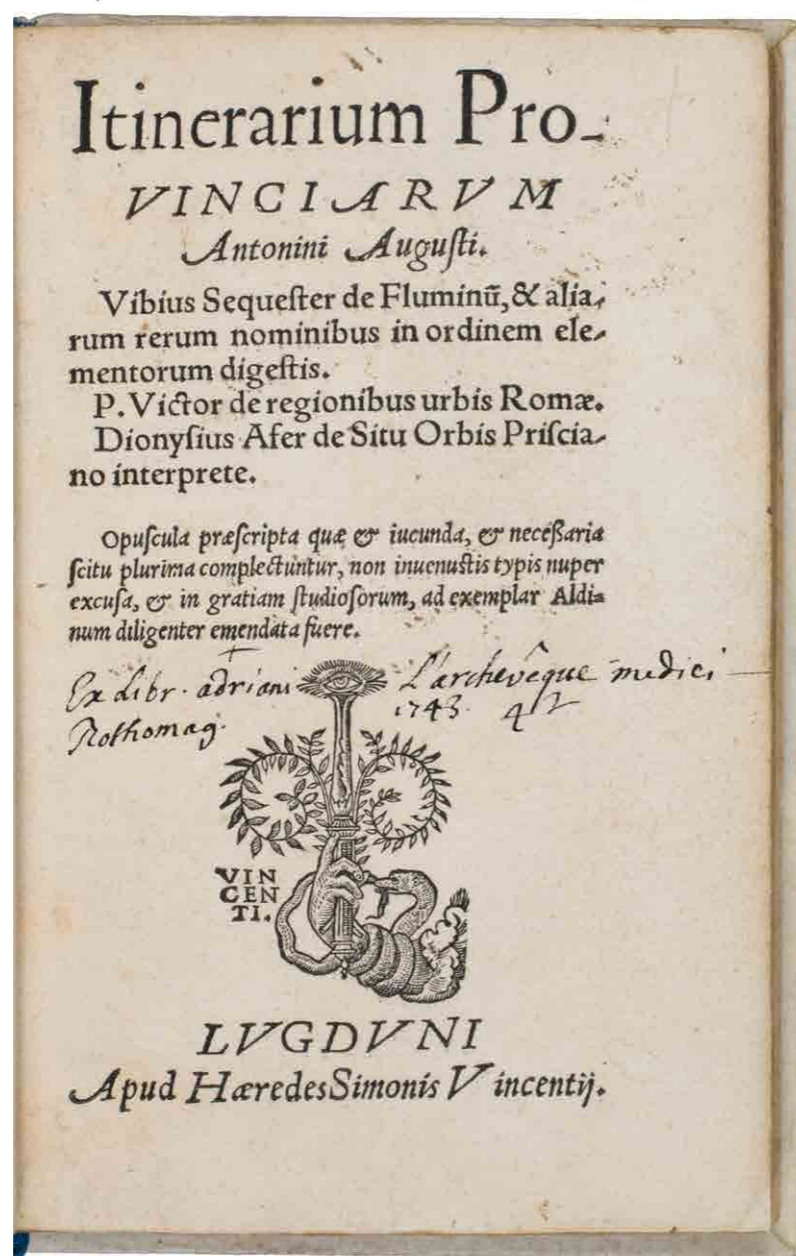 Itinerarium Pro-
VINCIARVM
Antonini Auguſti.
Vibius Sequeſter de Fluminū, & alia-
rum rerum nominibus in ordinem ele-
mentorum digeſtis.
P. Victor de regionibus urbis Romæ.
Dionyſius Afer de Situ Orbis Priſcia-
no interprete.
Opuſcula præſcripta quæ & iucunda, & neceßaria
ſcitu plurima complectuntur, non inuenuſtis typis nuper
excuſa, & in gratiam ſtudioſorum, ad exemplar Aldi-
num diligenter emendata fuere.
Ex Libr. adriani L'archevêque medici
Rothomag. 1743.
VIN
CEN
TI.
LVGDVNI
Apud Hæredes Simonis Vincentij.